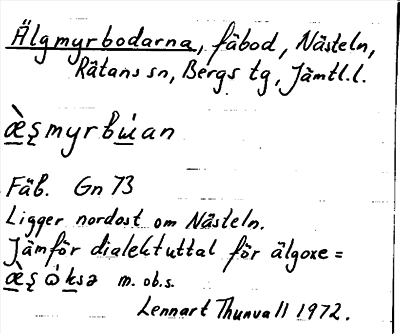 Älgmyrbodarna, fäbod, Nästeln,
Rätans sn, Bergs tg, Jämtl.l.
æ̀ȿmyrbu̇́an
Fäb. Gn 73
Ligger nordost om Nästeln.
Jämför dialektuttal för älgoxe =
æ̀ȿ ω̇ksə m. ob.s.
Lennart Thunvall 1972.